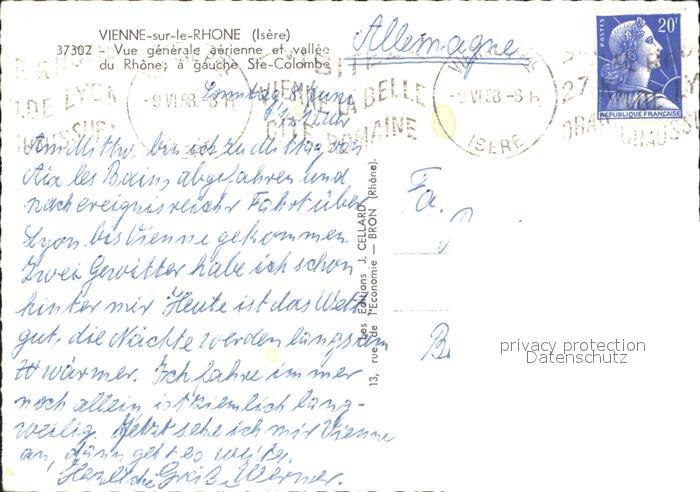 VIENNE-sur-le-RHONE (Isère)
37302 - Vue générale aérienne et vallée
du Rhône; à gauche Ste-Colombe
Allemagne
POSTES
20F
REPUBLIQUE FRANÇAISE
VIENNE LA BELLE
CITÉ ROMAINE
-9 VI 58 -8 H
-9 VI 58 -8 H
ISÈRE
DE LYON
27
Sonntag 8. Juni
Uhr
Am Mittw. bin ich zu Mittag von
Aix les Bains abgefahren und
nach ereignisreicher Fahrt über
Lyon bis Vienne gekommen.
Zwei Gewitter habe ich schon
hinter mir. Heute ist das Wett.
gut, die Nächte werden langsam
wärmer. Ich fahre immer
noch allein ist ziemlich lang-
weilig. Jetzt sehe ich mir Vienne
an, dann geht es weiter.
Herzliche Grüße Werner.
Les Editions J. CELLARD
13, rue de l'Economie — BRON (Rhône).
Fa.
B
privacy protection
Datenschutz